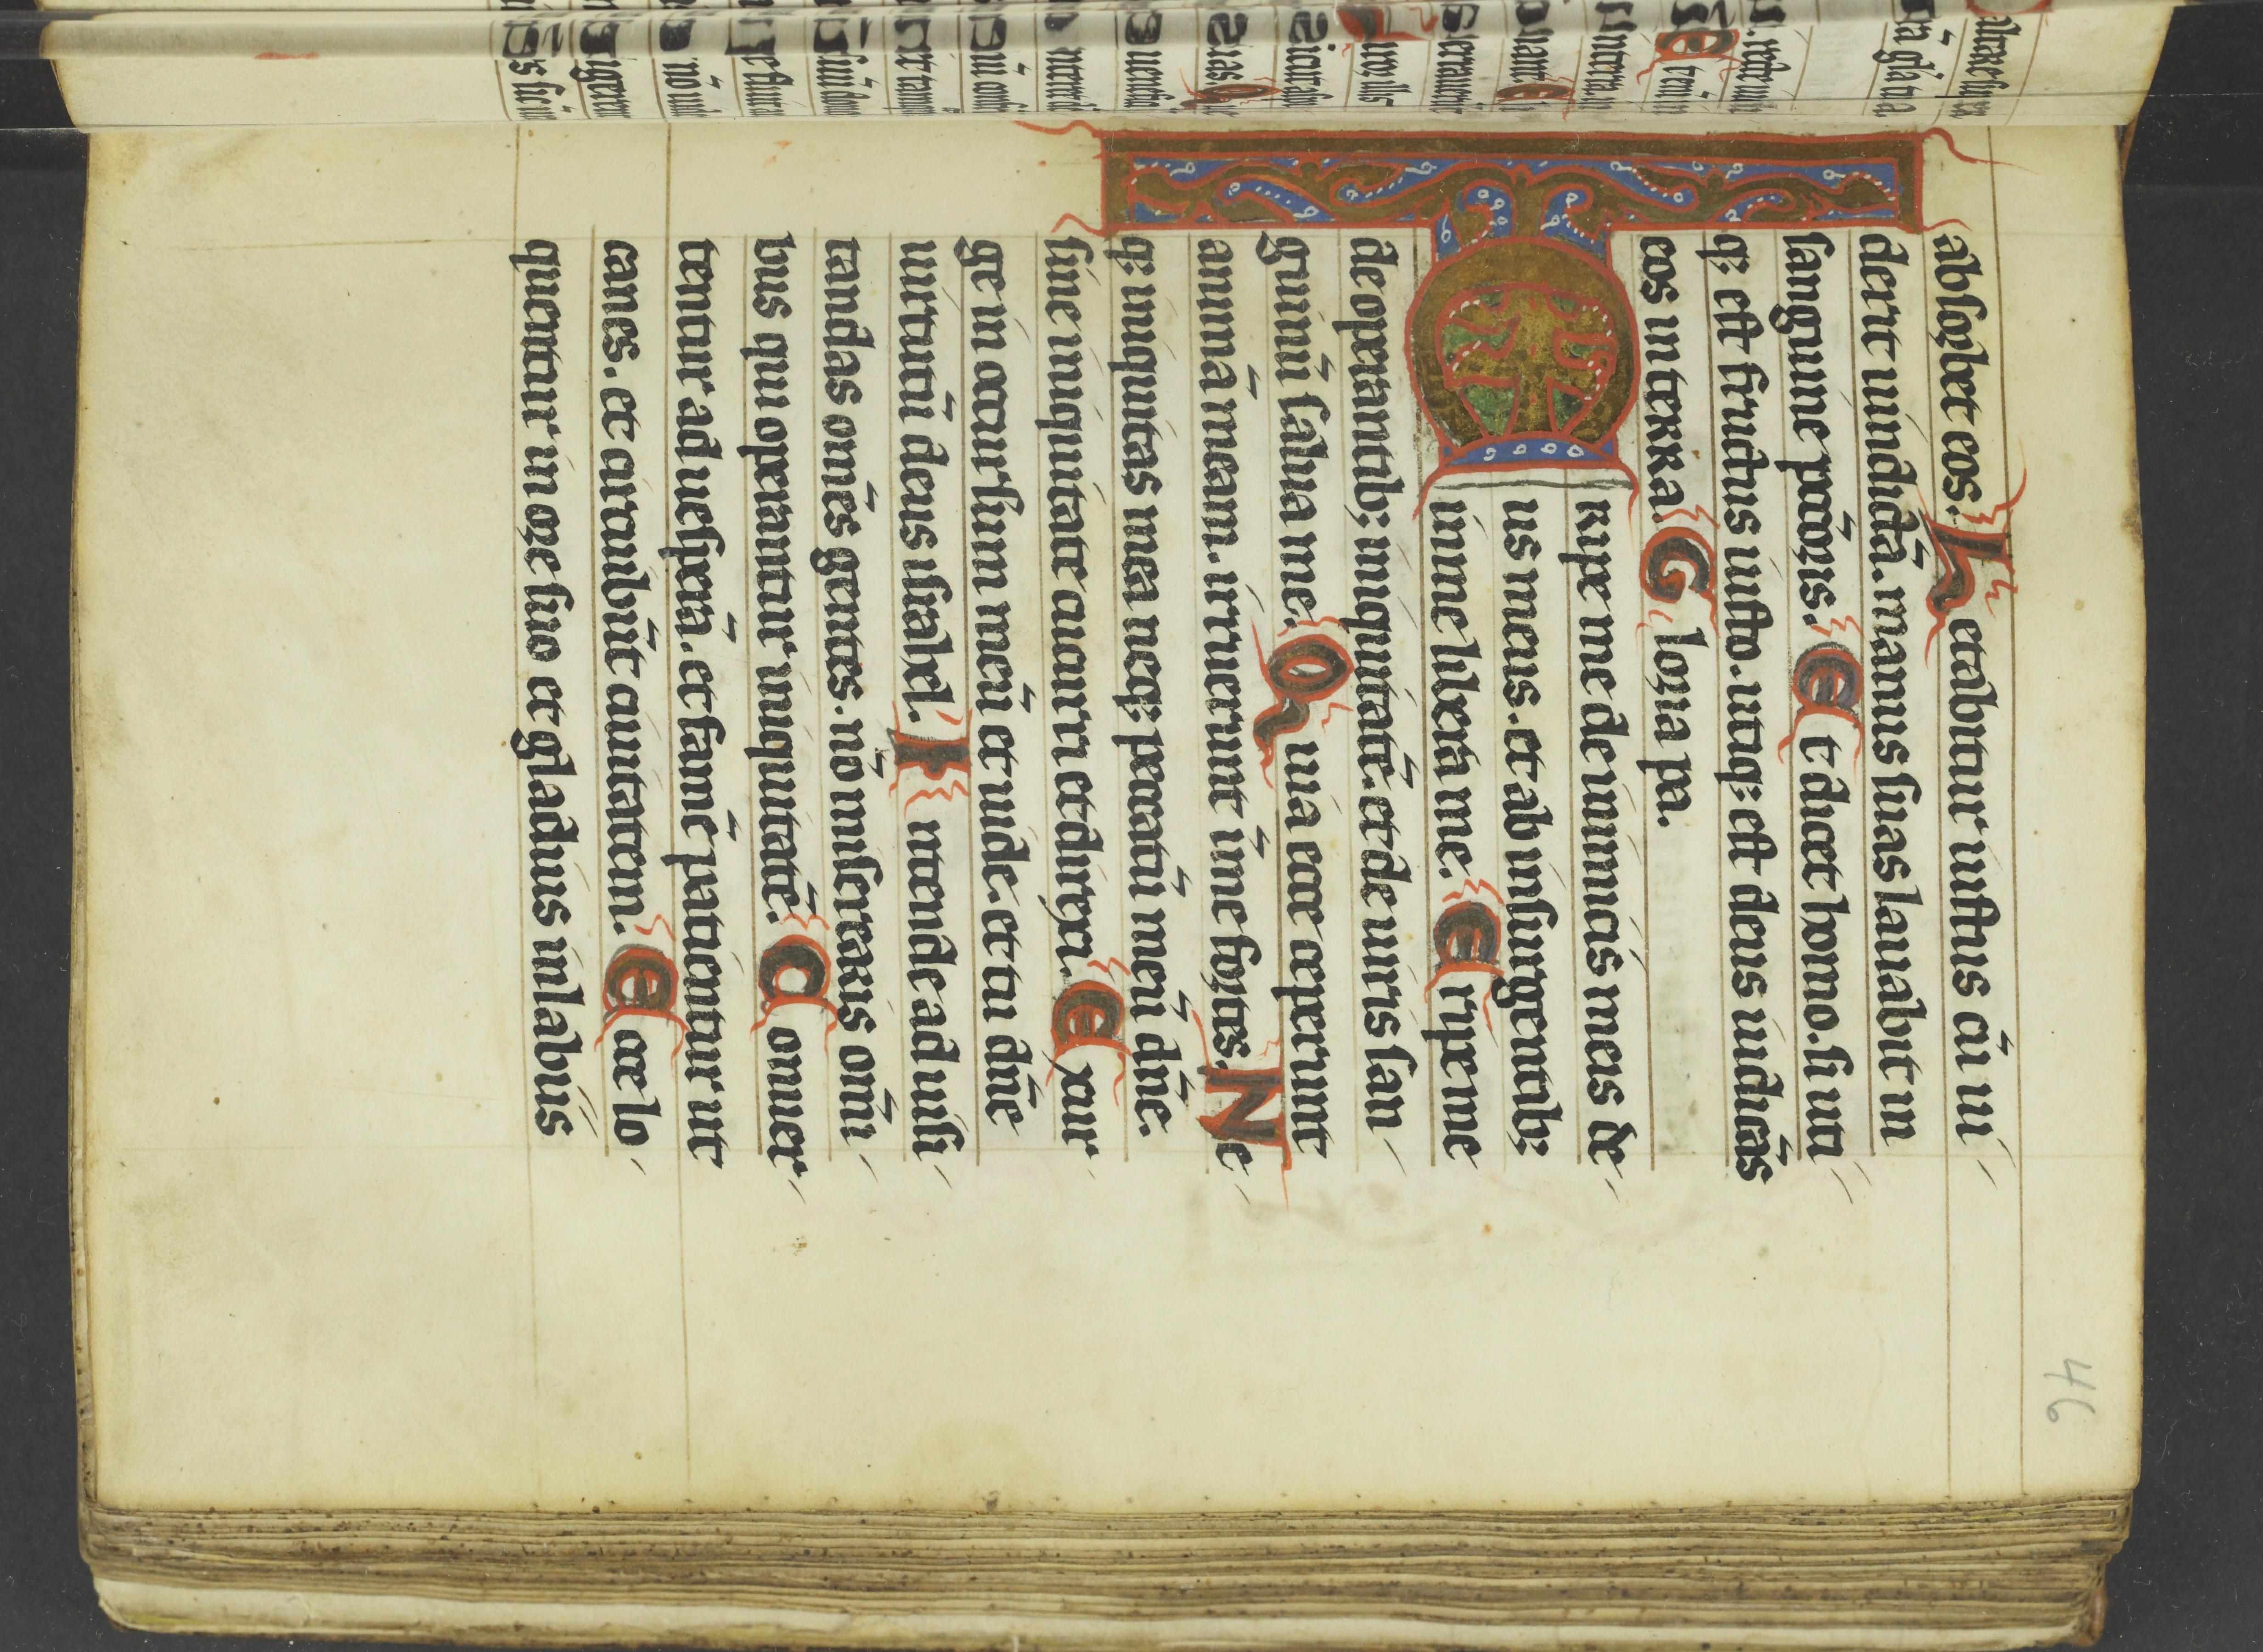 absorbet eos. Letabitur iustus cũ ui
derit uindictã. manus suas lauabit in
sanguine pctõris. Et dicet homo. si uti
q; est fructus iusto. utiq; est deus iudicãs
eos in terra. Gloria pa.
Eripe me de inimicis meis de
us meus. et ab insurgentib;
in me libera me. Eripe me
de operantib; iniquitatẽ. et de uiris san
guinũ salua me. Quia ecce ceperunt
animã meam. irruerunt ĩ me fortes. Ne
q; iniquitas mea neq; peccatũ meũ dñe.
sine iniquitate cucurri et direxi. Exur
ge in occursum meũ et uide. et tu dñe
uirtutũ deus israhel. Intende ad uisi
tandas omẽs gentes. nõ miserearis omĩ
bus qui operantur iniquitatẽ. Conuer
tentur ad uesperã. et famẽ patientur ut
canes. et circuibũt ciuitatem. Ecce lo
quentur in ore suo et gladius in labiis
46